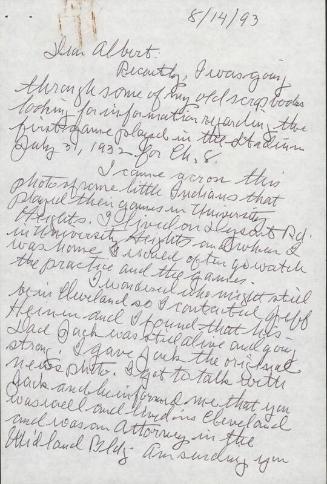 8/14/93
Dear Albert.
Recently, I was going
through some of my old scrapbooks
looking for information regarding the
first game played in the Stadium
July 31, 1932 for Ch. 8.
I came across this
photo of some little Indians that
played their games in University
Heights. I lived on Rd.
in University Heights and when I
was home I would often go watch
the practice and the games.
I wondered who might still
be in Cleveland so I contacted Jeff
Heinen and I found that his
Dad Jack was still alive and going
strong. I gave Jack the original
news photo. I got to talk with
Jack and he informed me that you
was well and lived in Cleveland
and was an Attorney in the
Midland Bldg. Am sending you